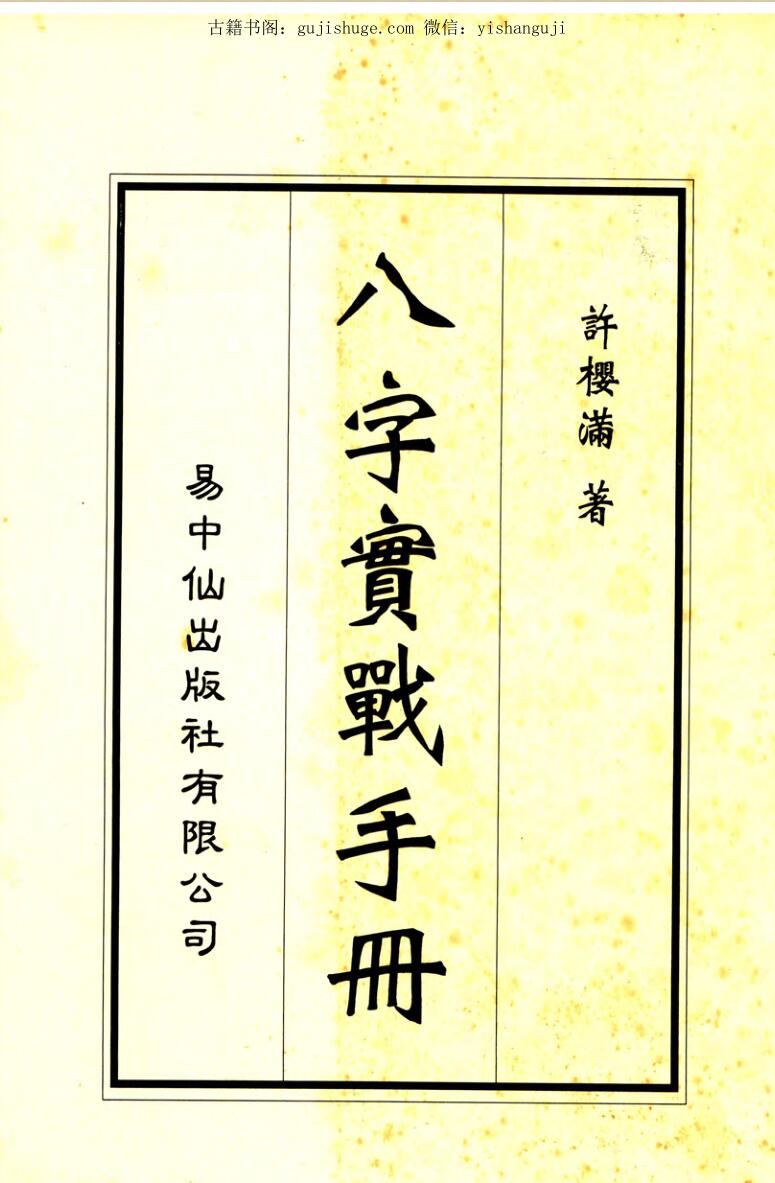 古籍书阁：gujishuge.com 微信：yishanguji
許櫻滿 著
八字實戰手冊
易中仙出版社有限公司